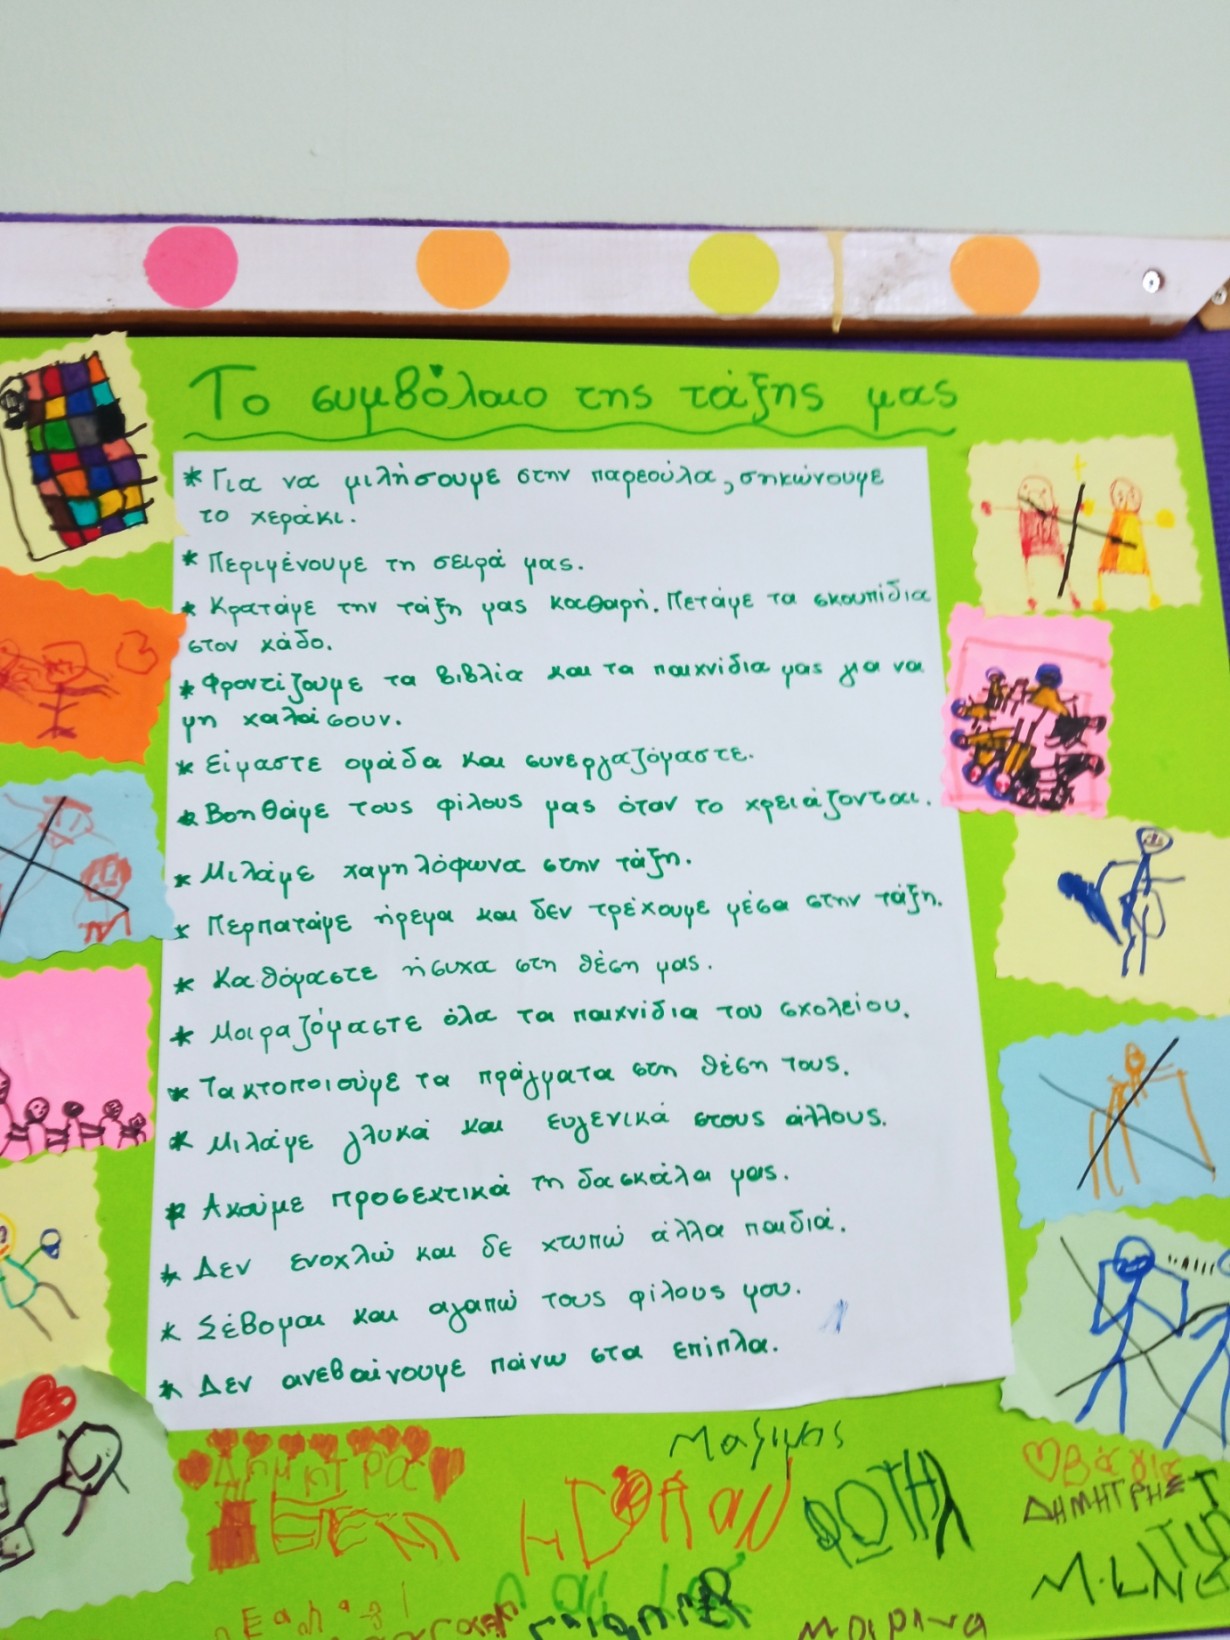 Το συμβόλαιο της τάξης μας
* Για να μιλήσουμε στην παρεούλα, σηκώνουμε
το χεράκι.
* Περιμένουμε τη σειρά μας.
* Κρατάμε την τάξη μας καθαρή. Πετάμε τα σκουπίδια
στον κάδο.
* Φροντίζουμε τα βιβλία και τα παιχνίδια μας για να
μη χαλάσουν.
* Είμαστε ομάδα και συνεργαζόμαστε.
* Βοηθάμε τους φίλους μας όταν το χρειάζονται.
* Μιλάμε χαμηλόφωνα στην τάξη.
* Περπατάμε ήρεμα και δεν τρέχουμε μέσα στην τάξη.
* Καθόμαστε ήσυχα στη θέση μας.
* Μοιραζόμαστε όλα τα παιχνίδια του σχολείου.
* Τακτοποιούμε τα πράγματα στη θέση τους.
* Μιλάμε γλυκά και ευγενικά στους άλλους.
* Ακούμε προσεκτικά τη δασκάλα μας.
* Δεν ενοχλώ και δε χτυπώ άλλα παιδιά.
* Σέβομαι και αγαπώ τους φίλους μου.
* Δεν ανεβαίνουμε πάνω στα έπιπλα.
Μάξιμος
Δημητρα
Βάγια
ΔΗΜΗΤΡΗΣ
ΦΩΤΗ
μαρινα